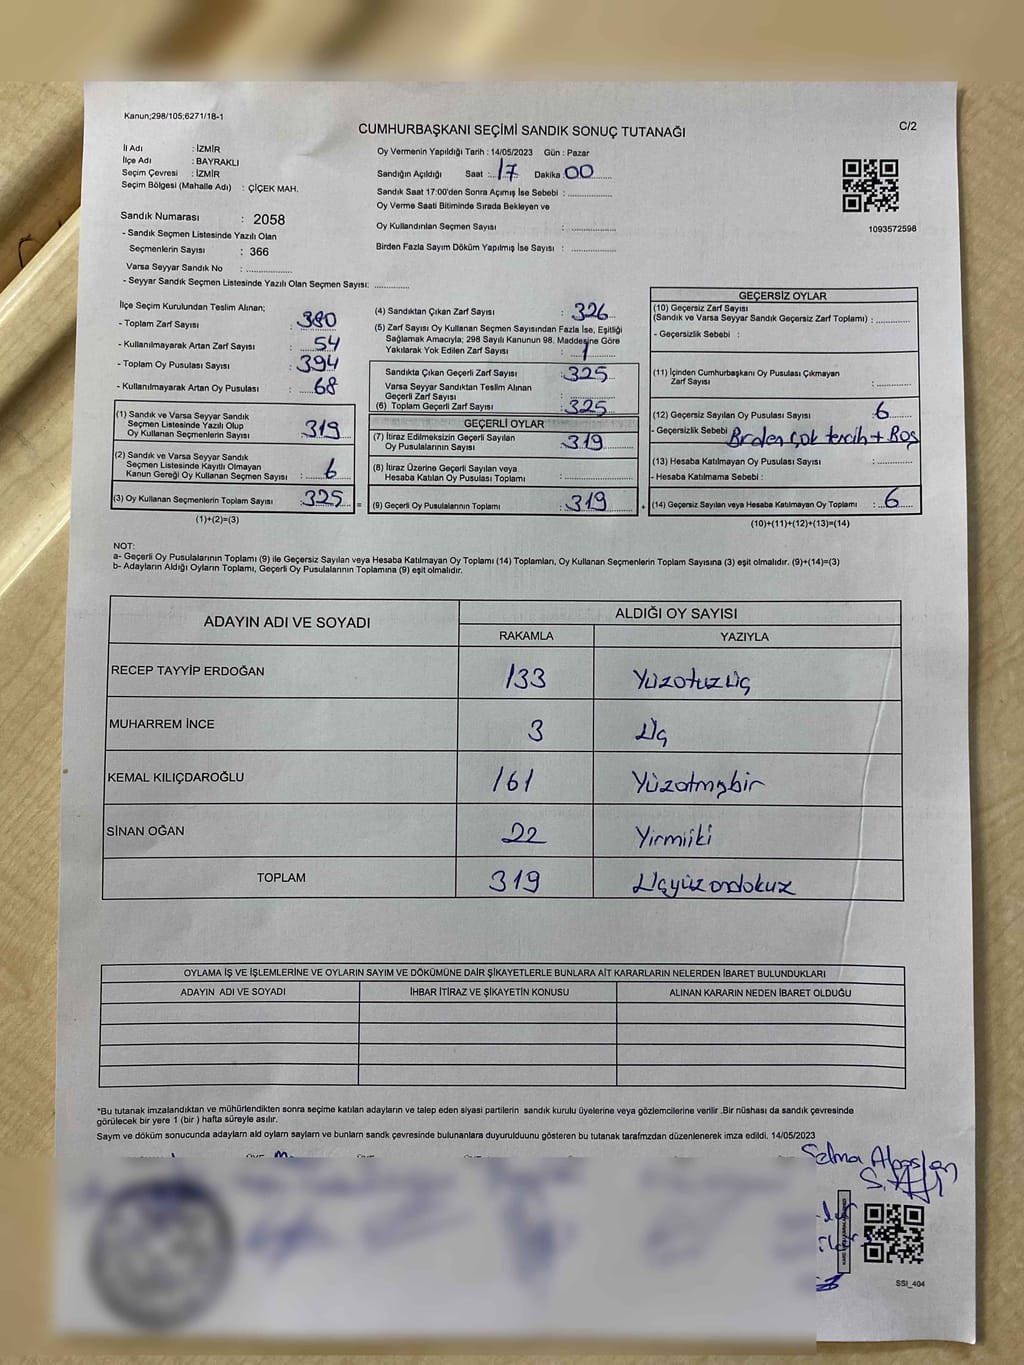 Kanun;298/105;6271/18-1
C/2
CUMHURBAŞKANI SEÇİMİ SANDIK SONUÇ TUTANAĞI
İl Adı : İZMİR
İlçe Adı : BAYRAKLI
Seçim Çevresi : İZMİR
Seçim Bölgesi (Mahalle Adı) : ÇİÇEK MAH.
Sandık Numarası : 2058
- Sandık Seçmen Listesinde Yazılı Olan
Seçmenlerin Sayısı : 366
Varsa Seyyar Sandık No : ..............
- Seyyar Sandık Seçmen Listesinde Yazılı Olan Seçmen Sayısı: ..........
Oy Vermenin Yapıldığı Tarih : 14/05/2023 Gün : Pazar
Sandığın Açıldığı Saat :..17.. Dakika :00..........
Sandık Saat 17:00'den Sonra Açımış İse Sebebi : .............
Oy Verme Saati Bitiminde Sırada Bekleyen ve
Oy Kullandırılan Seçmen Sayısı : .............
Birden Fazla Sayım Döküm Yapılmış İse Sayısı : .............
1093572598
İlçe Seçim Kurulundan Teslim Alınan;
- Toplam Zarf Sayısı : 380
- Kullanılmayarak Artan Zarf Sayısı : 54
- Toplam Oy Pusulası Sayısı : 394
- Kullanılmayarak Artan Oy Pusulası : 68
(1) Sandık ve Varsa Seyyar Sandık
Seçmen Listesinde Yazılı Olup
Oy Kullanan Seçmenlerin Sayısı : 319
(2) Sandık ve Varsa Seyyar Sandık
Seçmen Listesinde Kayıtlı Olmayan
Kanun Gereği Oy Kullanan Seçmen Sayısı : 6
(3) Oy Kullanan Seçmenlerin Toplam Sayısı : 325
(1)+(2)=(3)
=
(4) Sandıktan Çıkan Zarf Sayısı : 326
(5) Zarf Sayısı Oy Kullanan Seçmen Sayısından Fazla İse, Eşitliği
Sağlamak Amacıyla; 298 Sayılı Kanunun 98. Maddesine Göre
Yakılarak Yok Edilen Zarf Sayısı : 1
Sandıkta Çıkan Geçerli Zarf Sayısı : 325
Varsa Seyyar Sandıktan Teslim Alınan
Geçerli Zarf Sayısı : .............
(6) Toplam Geçerli Zarf Sayısı : 325
GEÇERLİ OYLAR
(7) İtiraz Edilmeksizin Geçerli Sayılan
Oy Pusulalarının Sayısı : 319
(8) İtiraz Üzerine Geçerli Sayılan veya
Hesaba Katılan Oy Pusulası Toplamı : .............
(9) Geçerli Oy Pusulalarının Toplamı : 319
+
GEÇERSİZ OYLAR
(10) Geçersiz Zarf Sayısı
(Sandık ve Varsa Seyyar Sandık Geçersiz Zarf Toplamı) : ..........
- Geçersizlik Sebebi :
(11) İçinden Cumhurbaşkanı Oy Pusulası Çıkmayan
Zarf Sayısı : ..........
(12) Geçersiz Sayılan Oy Pusulası Sayısı : 6
- Geçersizlik Sebebi Birden çok tercih + Boş
(13) Hesaba Katılmayan Oy Pusulası Sayısı : ..........
- Hesaba Katılmama Sebebi :
(14) Geçersiz Sayılan veya Hesaba Katılmayan Oy Toplamı : 6
(10)+(11)+(12)+(13)=(14)
NOT:
a- Geçerli Oy Pusulalarının Toplamı (9) ile Geçersiz Sayılan veya Hesaba Katılmayan Oy Toplamı (14) Toplamları, Oy Kullanan Seçmenlerin Toplam Sayısına (3) eşit olmalıdır. (9)+(14)=(3)
b- Adayların Aldığı Oyların Toplamı, Geçerli Oy Pusulalarının Toplamına (9) eşit olmalıdır.
ADAYIN ADI VE SOYADI
ALDIĞI OY SAYISI
RAKAMLA YAZIYLA
RECEP TAYYİP ERDOĞAN 133 Yüzotuzüç
MUHARREM İNCE 3 Üç
KEMAL KILIÇDAROĞLU 161 Yüzatmışbir
SİNAN OĞAN 22 Yirmiiki
TOPLAM 319 Üçyüzondokuz
OYLAMA İŞ VE İŞLEMLERİNE VE OYLARIN SAYIM VE DÖKÜMÜNE DAİR ŞİKAYETLERLE BUNLARA AİT KARARLARIN NELERDEN İBARET BULUNDUKLARI
ADAYIN ADI VE SOYADI İHBAR İTİRAZ VE ŞİKAYETİN KONUSU ALINAN KARARIN NEDEN İBARET OLDUĞU
*Bu tutanak imzalandıktan ve mühürlendikten sonra seçime katılan adayların ve talep eden siyasi partilerin sandık kurulu üyelerine veya gözlemcilerine verilir .Bir nüshası da sandık çevresinde
görülecek bir yere 1 (bir ) hafta süreyle asılır.
Saym ve döküm sonucunda adaylarn ald oylarn saylarn ve bunlarn sandk çevresinde bulunanlara duyurulduunu gösteren bu tutanak tarafmzdan düzenlenerek imza edildi. 14/05/2023
Selma
SSI_404